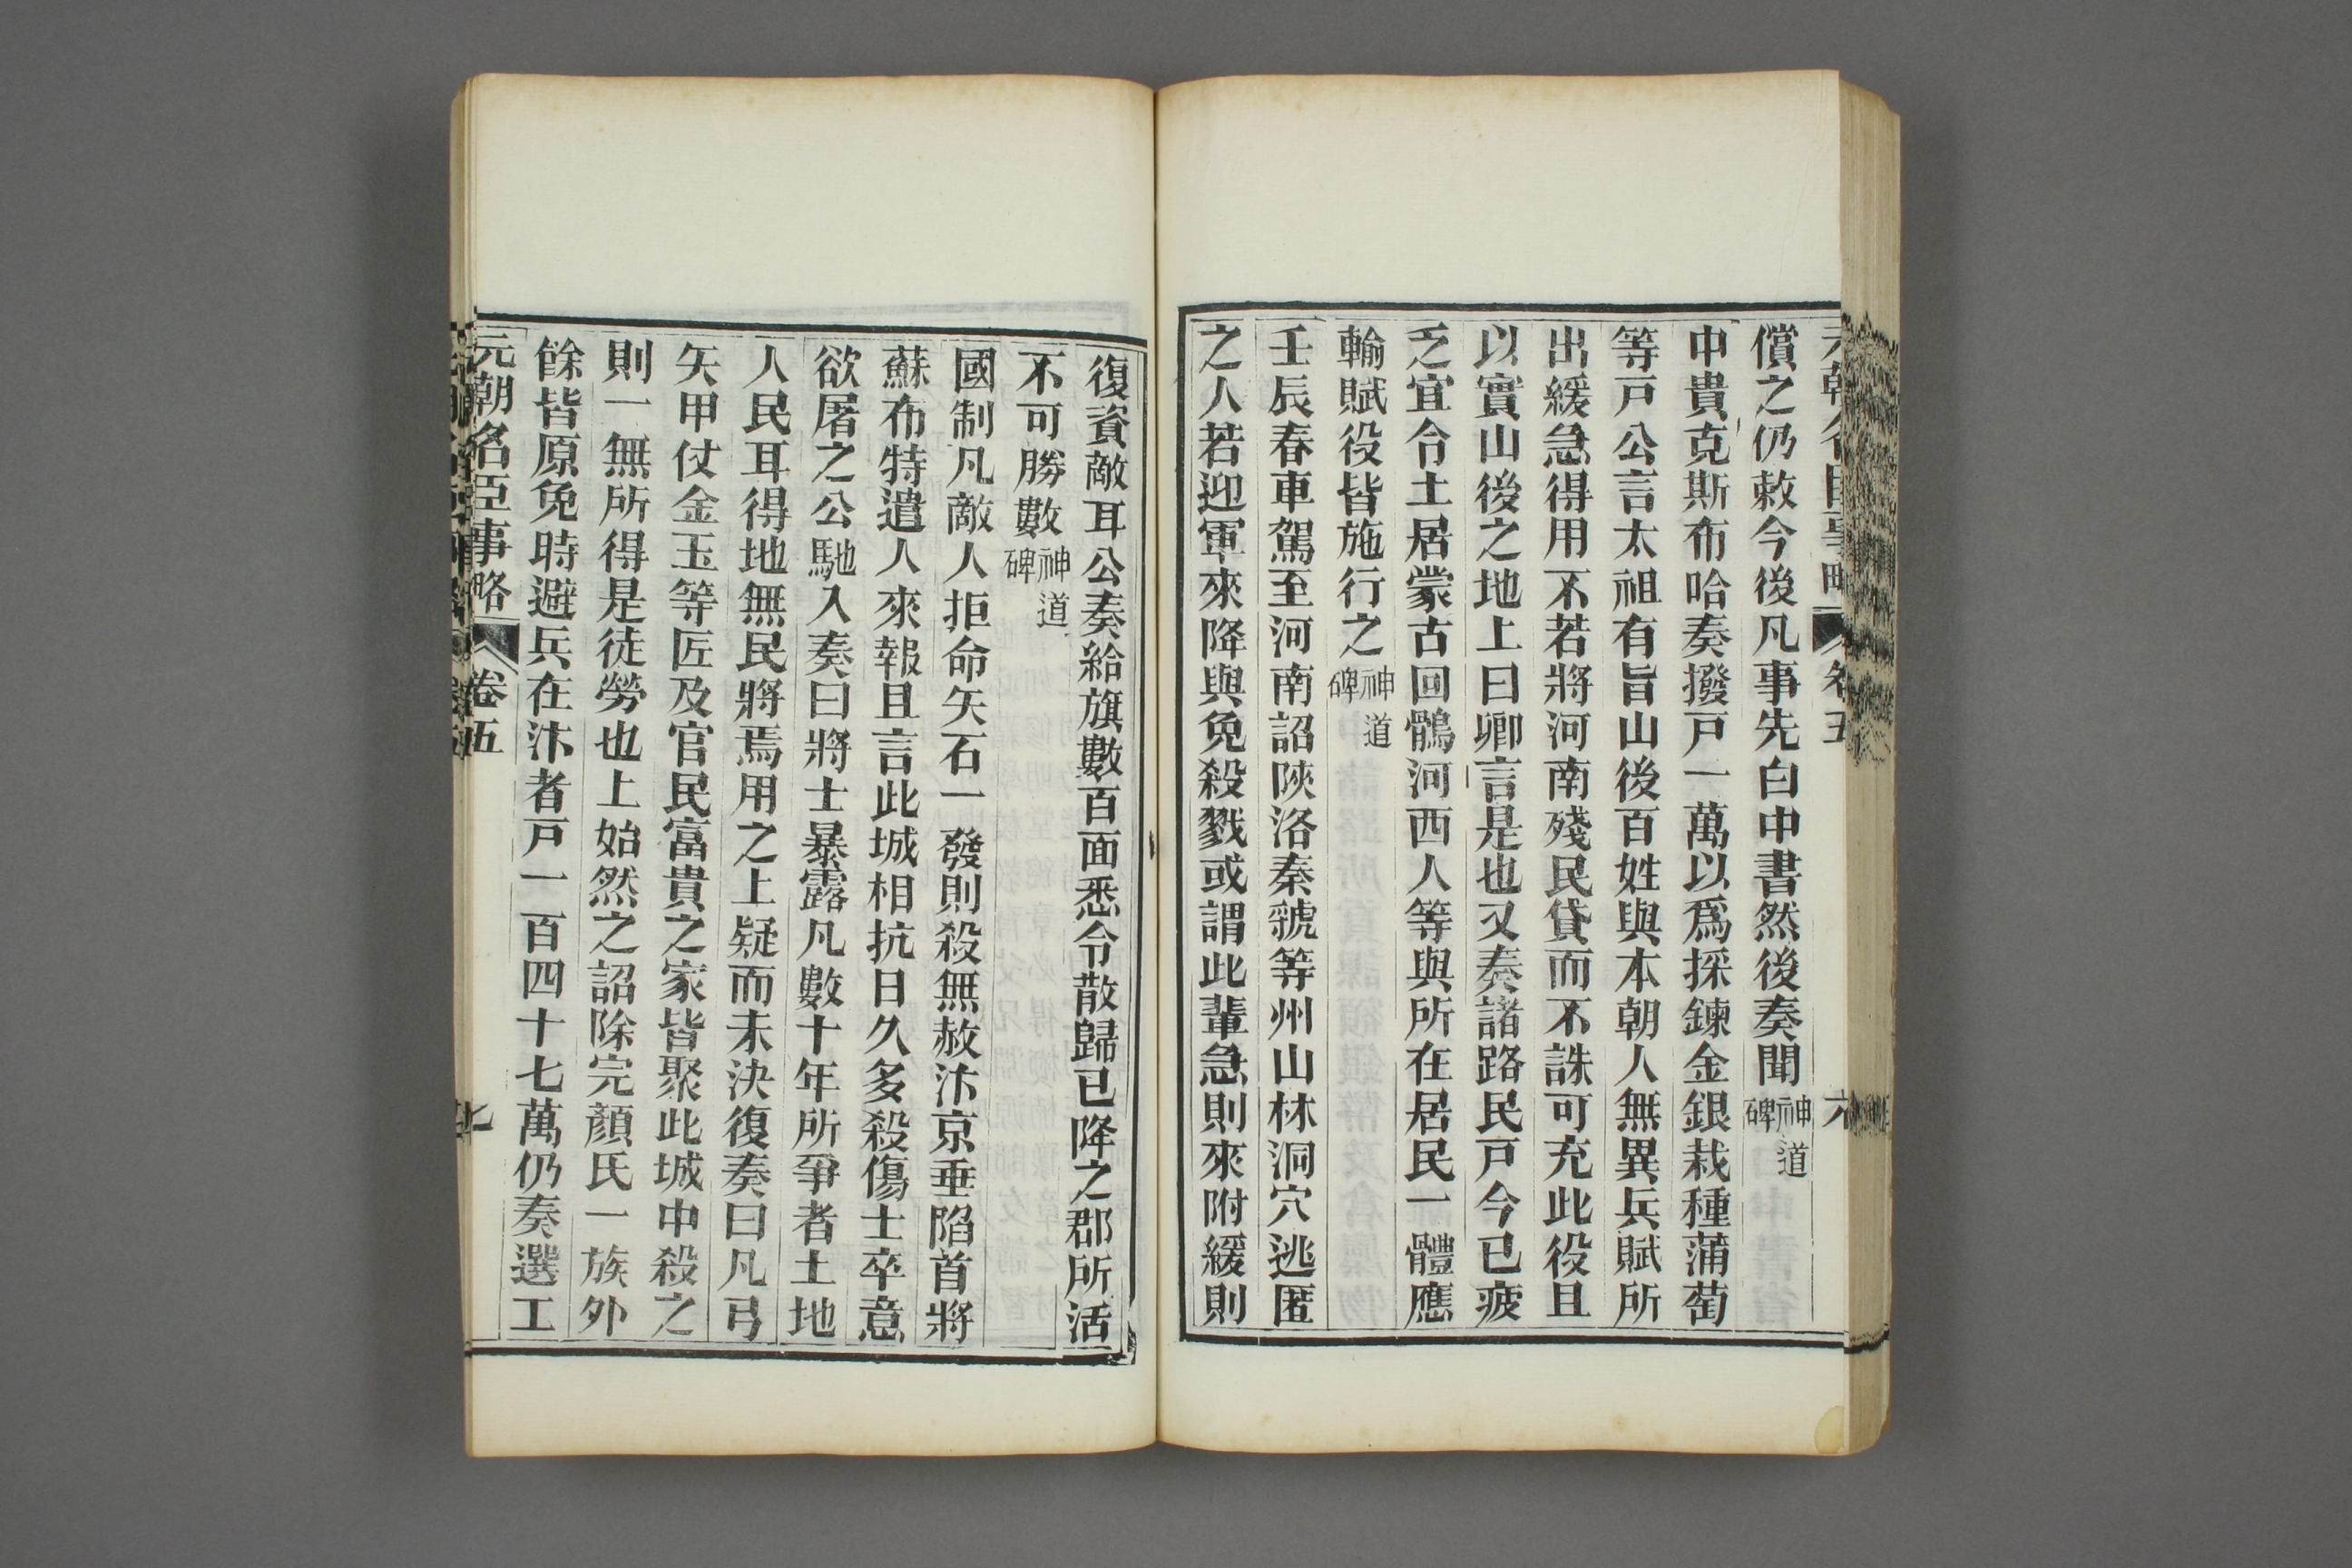 元朝名臣事略 卷五 六
償之仍敕今後凡事先白中書然後奏聞神道碑
中貴克斯布哈奏撥戸一萬以爲採鍊金銀栽種蒲萄
等戸公言太祖有旨山後百姓與本朝人無異兵賦所
出緩急得用不若將河南殘民貸而不誅可充此役且
以實山後之地上曰卿言是也又奏諸路民戸今已疲
乏宜令土居蒙古回鶻河西人等與所在居民一體應
輸賦役皆施行之神道碑
壬辰春車駕至河南詔陝洛秦虢等州山林洞穴逃匿
之人若迎軍來降與免殺戮或謂此輩急則來附緩則
復資敵耳公奏給旗數百面悉令散歸已降之郡所活
不可勝數神道碑
國制凡敵人拒命矢石一發則殺無赦汴京垂陷首將
蘇布特遣人來報且言此城相抗日久多殺傷士卒意
欲屠之公馳入奏曰將士暴露凡數十年所爭者土地
人民耳得地無民將焉用之上疑而未決復奏曰凡弓
矢甲仗金玉等匠及官民富貴之家皆聚此城中殺之
則一無所得是徒勞也上始然之詔除完顏氏一族外
餘皆原免時避兵在汴者戸一百四十七萬仍奏選工
元朝名臣事略 卷五 七